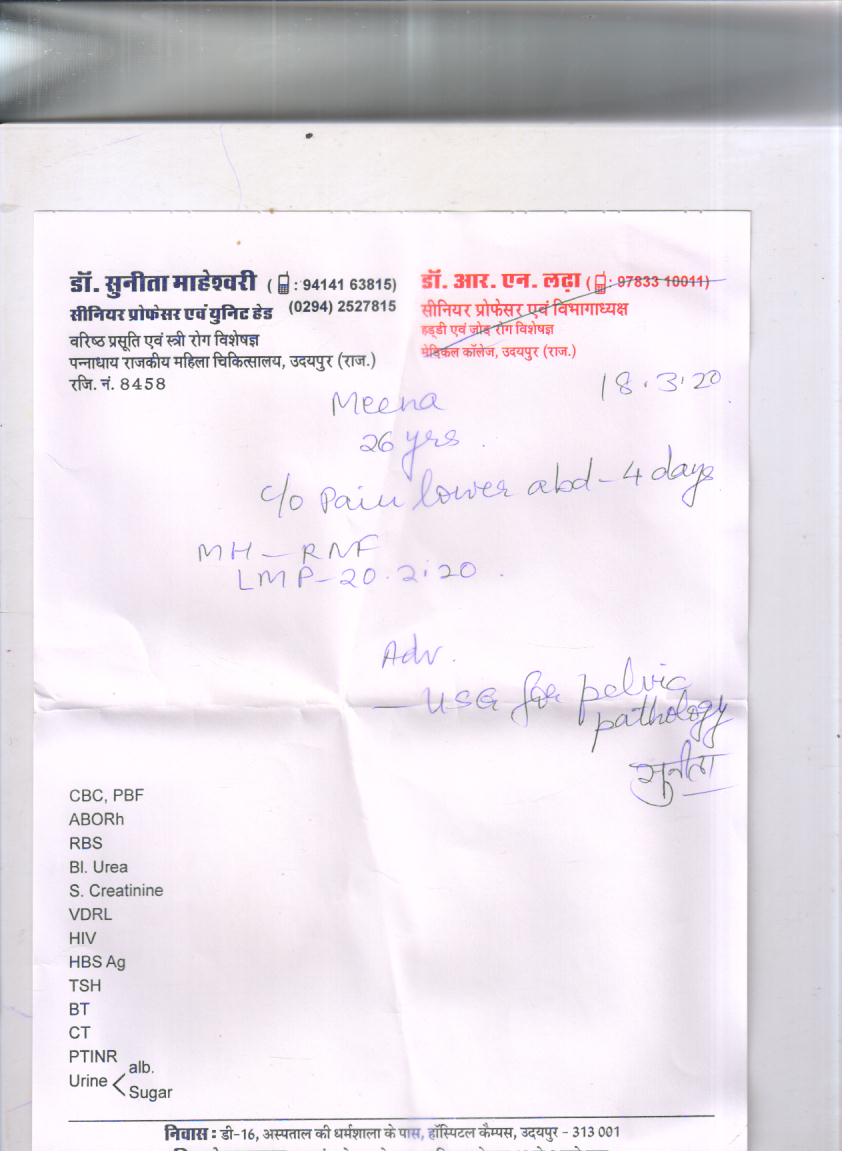 डॉ. सुनीता माहेश्वरी ( : 94141 63815)
सीनियर प्रोफेसर एवं युनिट हेड (0294) 2527815
वरिष्ठ प्रसूति एवं स्त्री रोग विशेषज्ञ
पन्नाधाय राजकीय महिला चिकित्सालय, उदयपुर (राज.)
रजि. नं. 8458
डॉ. आर. एन. लढ़ा ( : 97833 10011)
सीनियर प्रोफेसर एवं विभागाध्यक्ष
हड्डी एवं जोड़ रोग विशेषज्ञ
मेडिकल कॉलेज, उदयपुर (राज.)
18.3.20
Meena
26 yrs.
c/o Pain lower abd - 4 days
MH - RNF
LMP - 20.2.20.
Adv.
- USG for pelvic
pathology
सुनीता
CBC, PBF
ABORh
RBS
Bl. Urea
S. Creatinine
VDRL
HIV
HBS Ag
TSH
BT
CT
PTINR
Urine < alb.
Sugar
निवास : डी-16, अस्पताल की धर्मशाला के पास, हॉस्पिटल कैम्पस, उदयपुर - 313 001